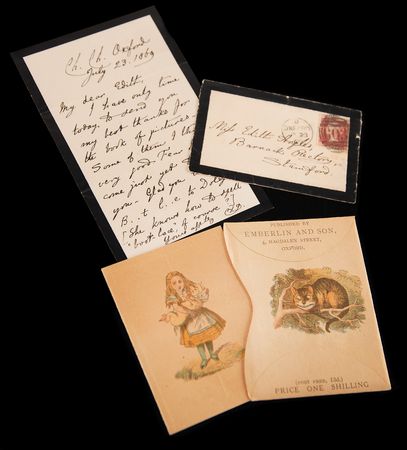 Ch. Ch. Oxford
July 23. 1869
My dear Edith,
I have only time
today to send you
my best thanks for
the book of pictures
Some of them I think
very good. Fear I
come just yet to
you. Glad you
to Dolly
"She knows how to spell
"boot-lace," of course?
Yours affly C.L.D.
Miss Edith
Barnack Rectory
Stamford
PUBLISHED BY
EMBERLIN AND SON,
4, MAGDALEN STREET,
OXFORD.
(POST FREE, 13d.)
PRICE ONE SHILLING